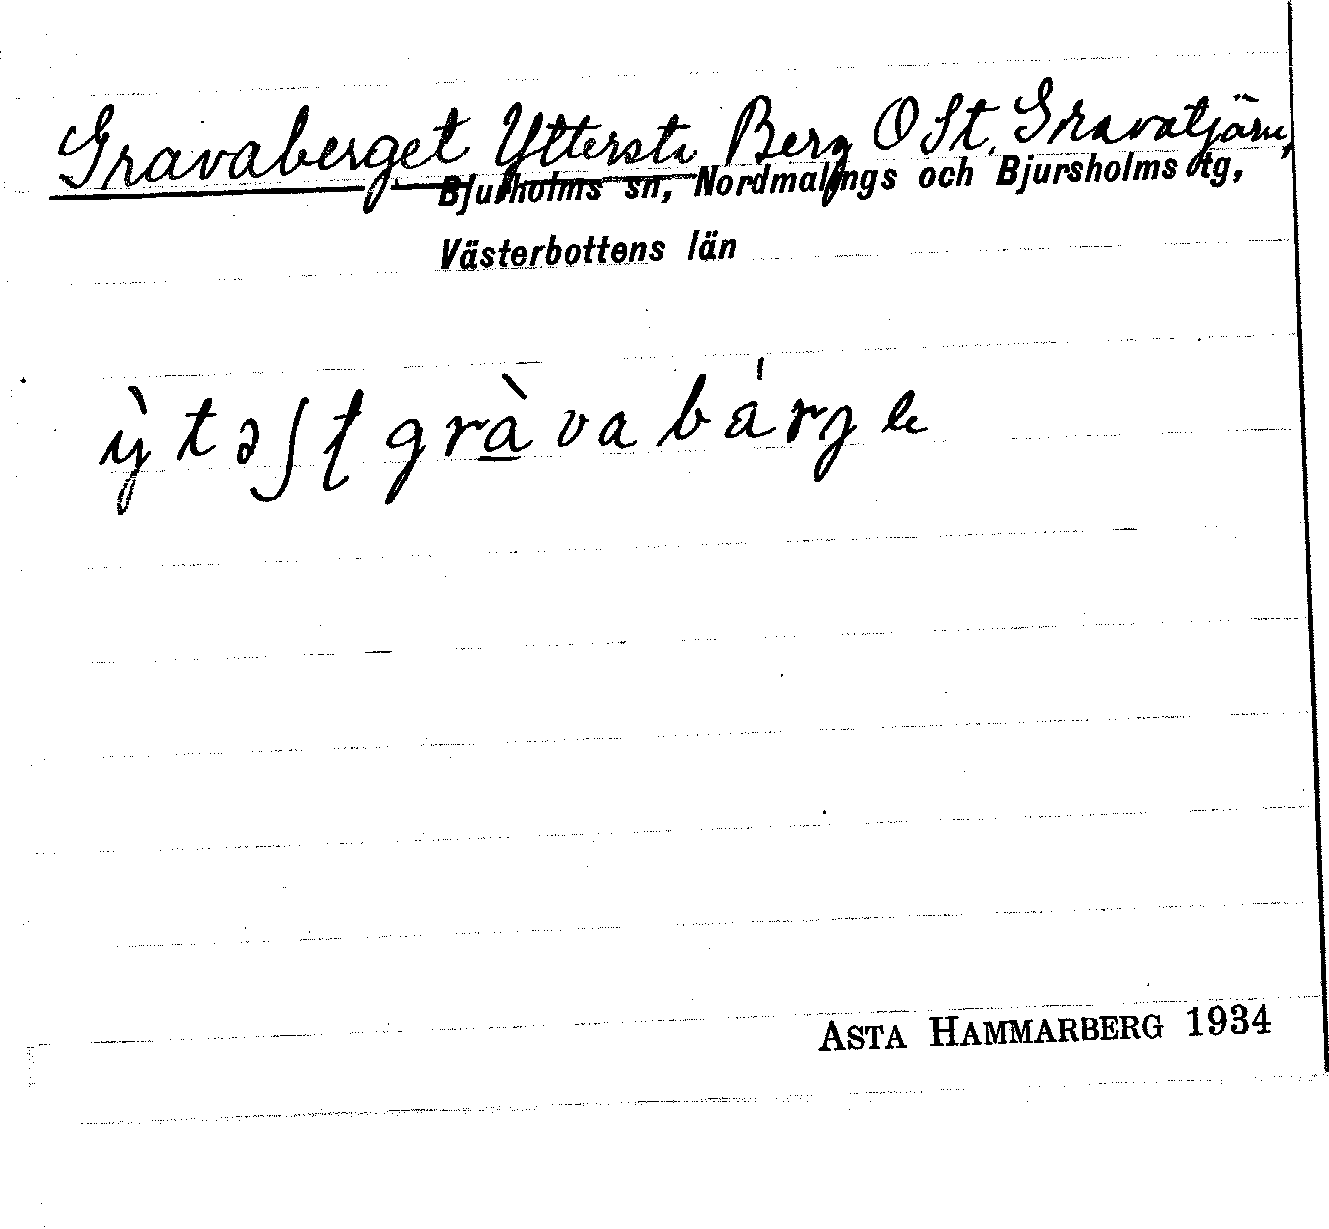 Gravaberget Yttersta Berg O St. Gravatjärn,
Bjurholms sn, Nordmalings och Bjursholms tg,
Västerbottens län
ỳtəʃʈ gràvabárgɐ
ASTA HAMMARBERG 1934